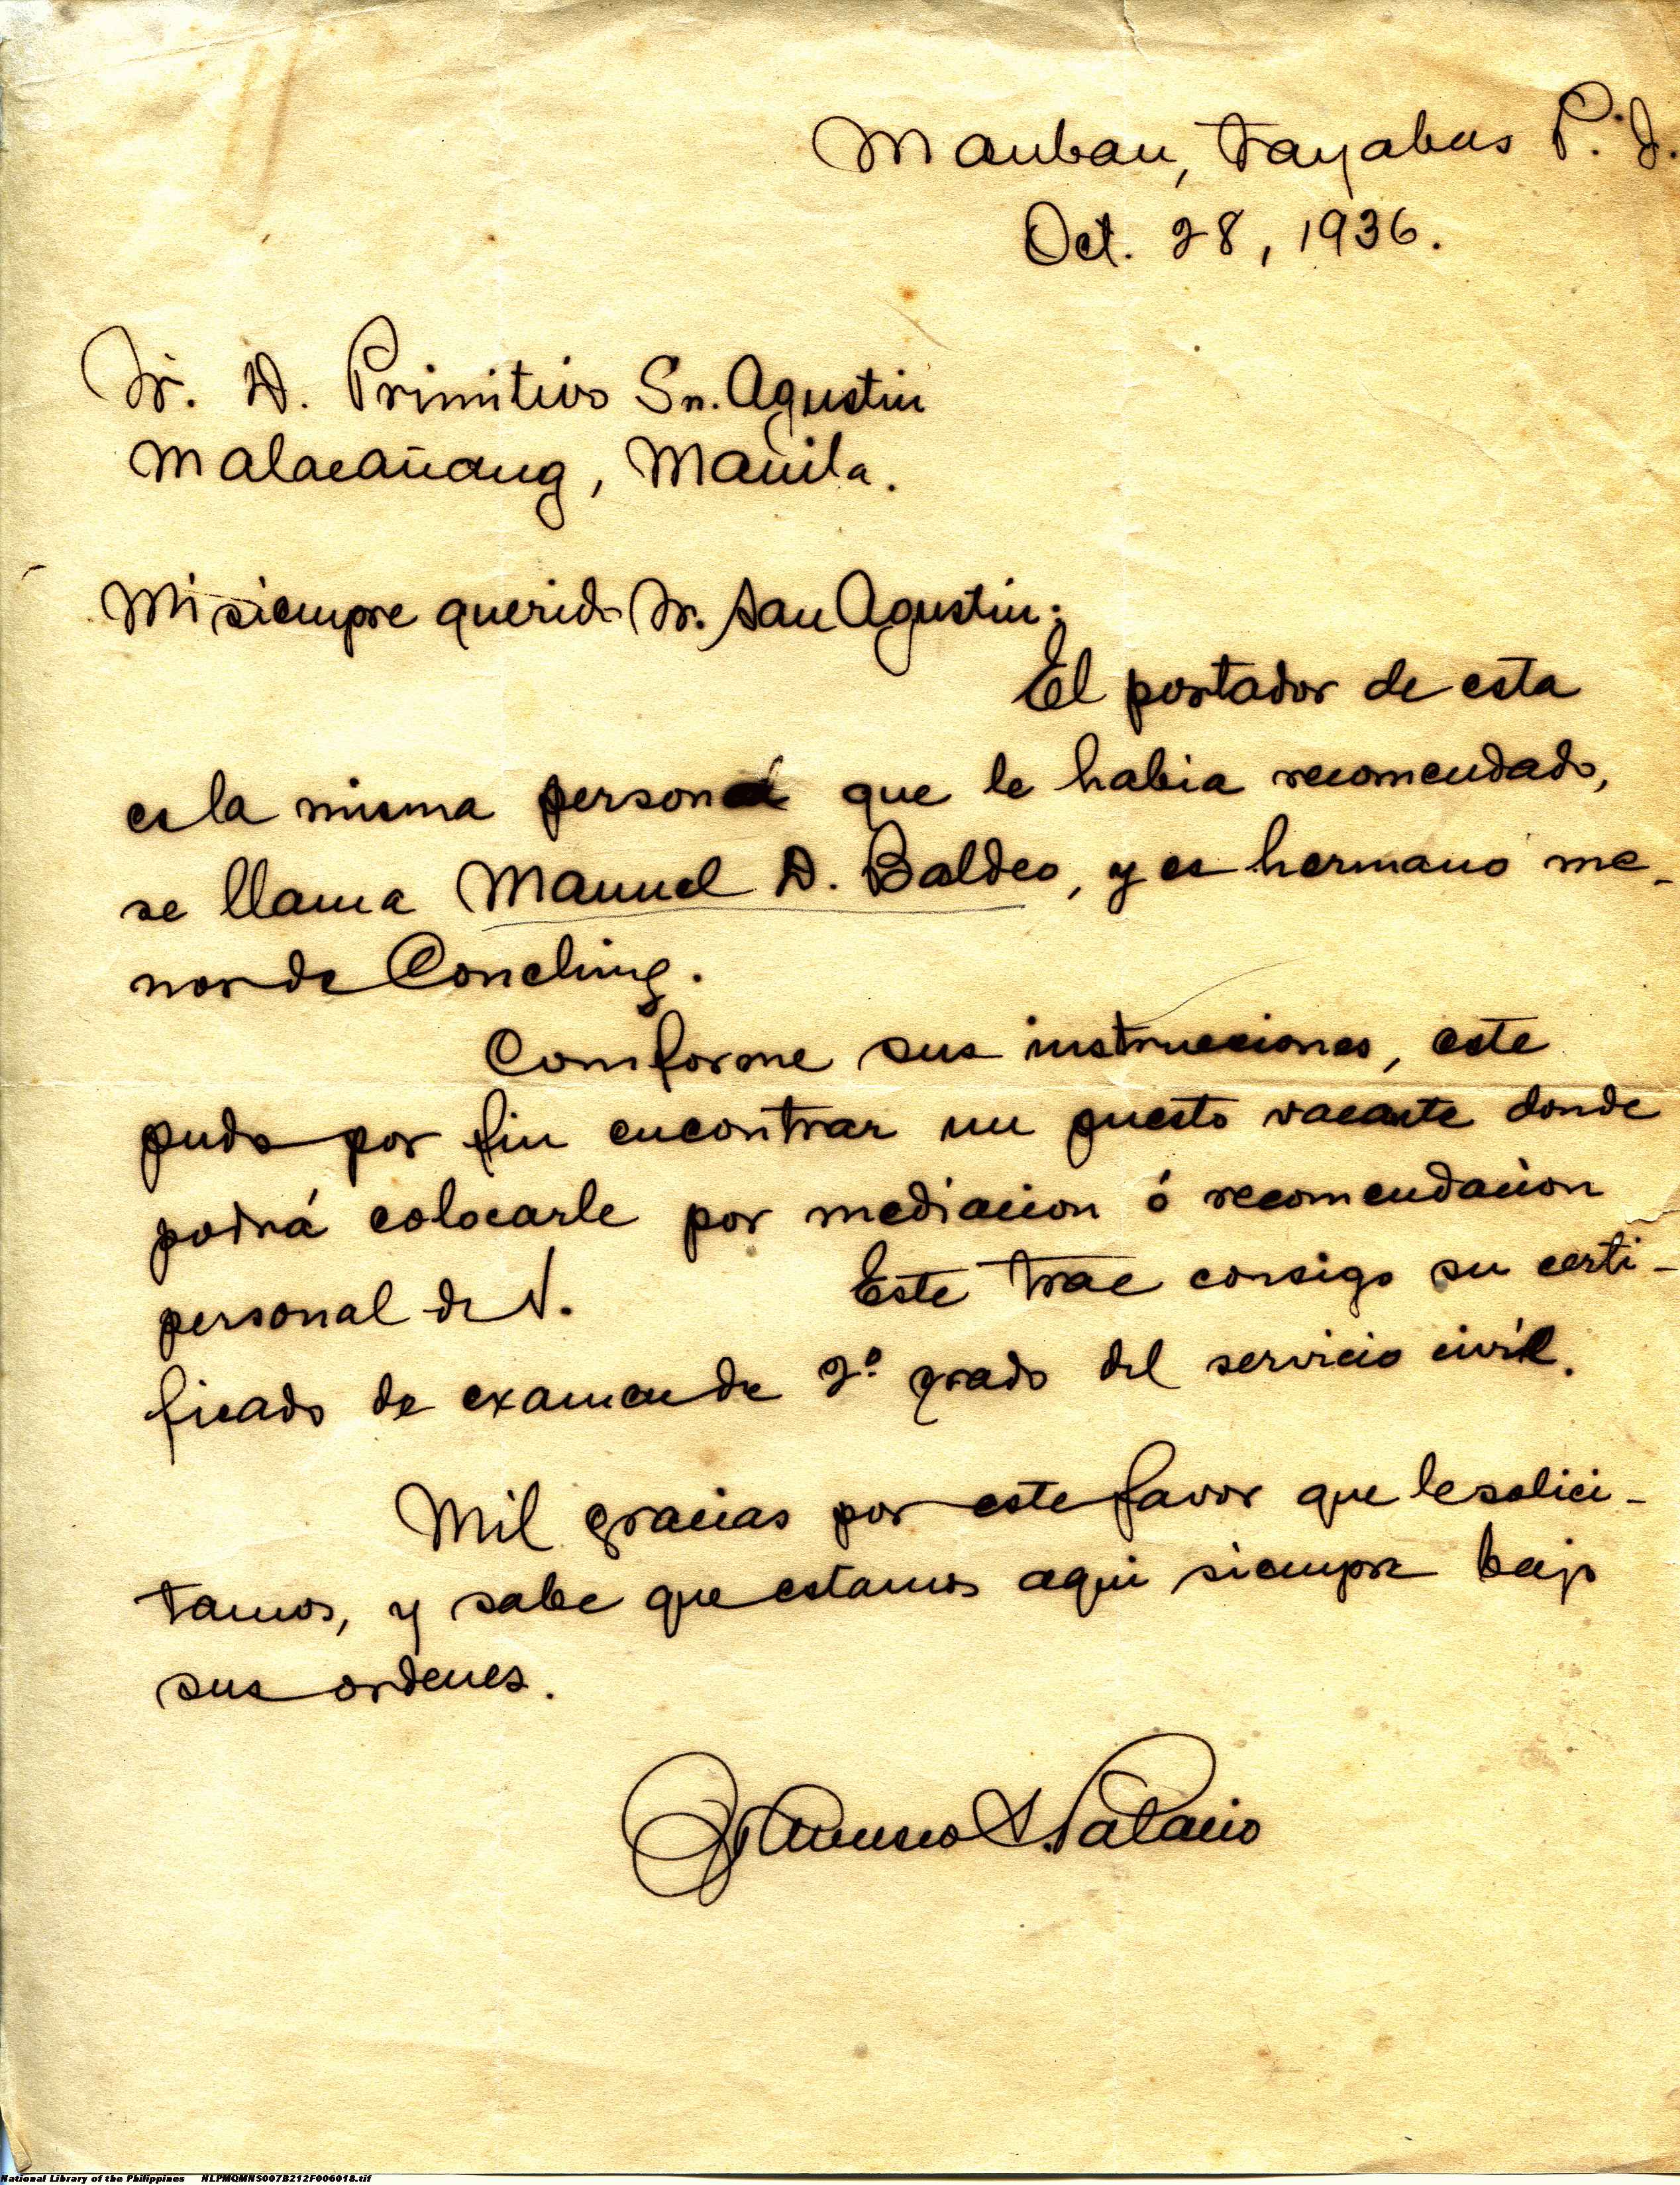 Mauban, Tayabas P. I.
Oct. 28, 1936.
Sr. D. Primitivo Sn. Agustin
Malacañang, Manila.
Mi siempre querido Sr. San Agustin:
El portador de esta
es la misma persona que le habia recomendado,
se llama Manuel D. Baldeo, y es hermano me-
nor de Conching.
Comforme sus instrucciones, este
pudo por fin encontrar un puesto vacante donde
podrá colocarle por mediacion ó recomendacion
personal de V. Este trae consigo su certi-
ficado de examen de 2º grado del servicio civil.
Mil gracias por este favor que le solici-
tamos, y sabe que estamos aqui siempre bajo
sus ordenes.
National Library of the Philippines NLPMQMNS007B212F006018.tif